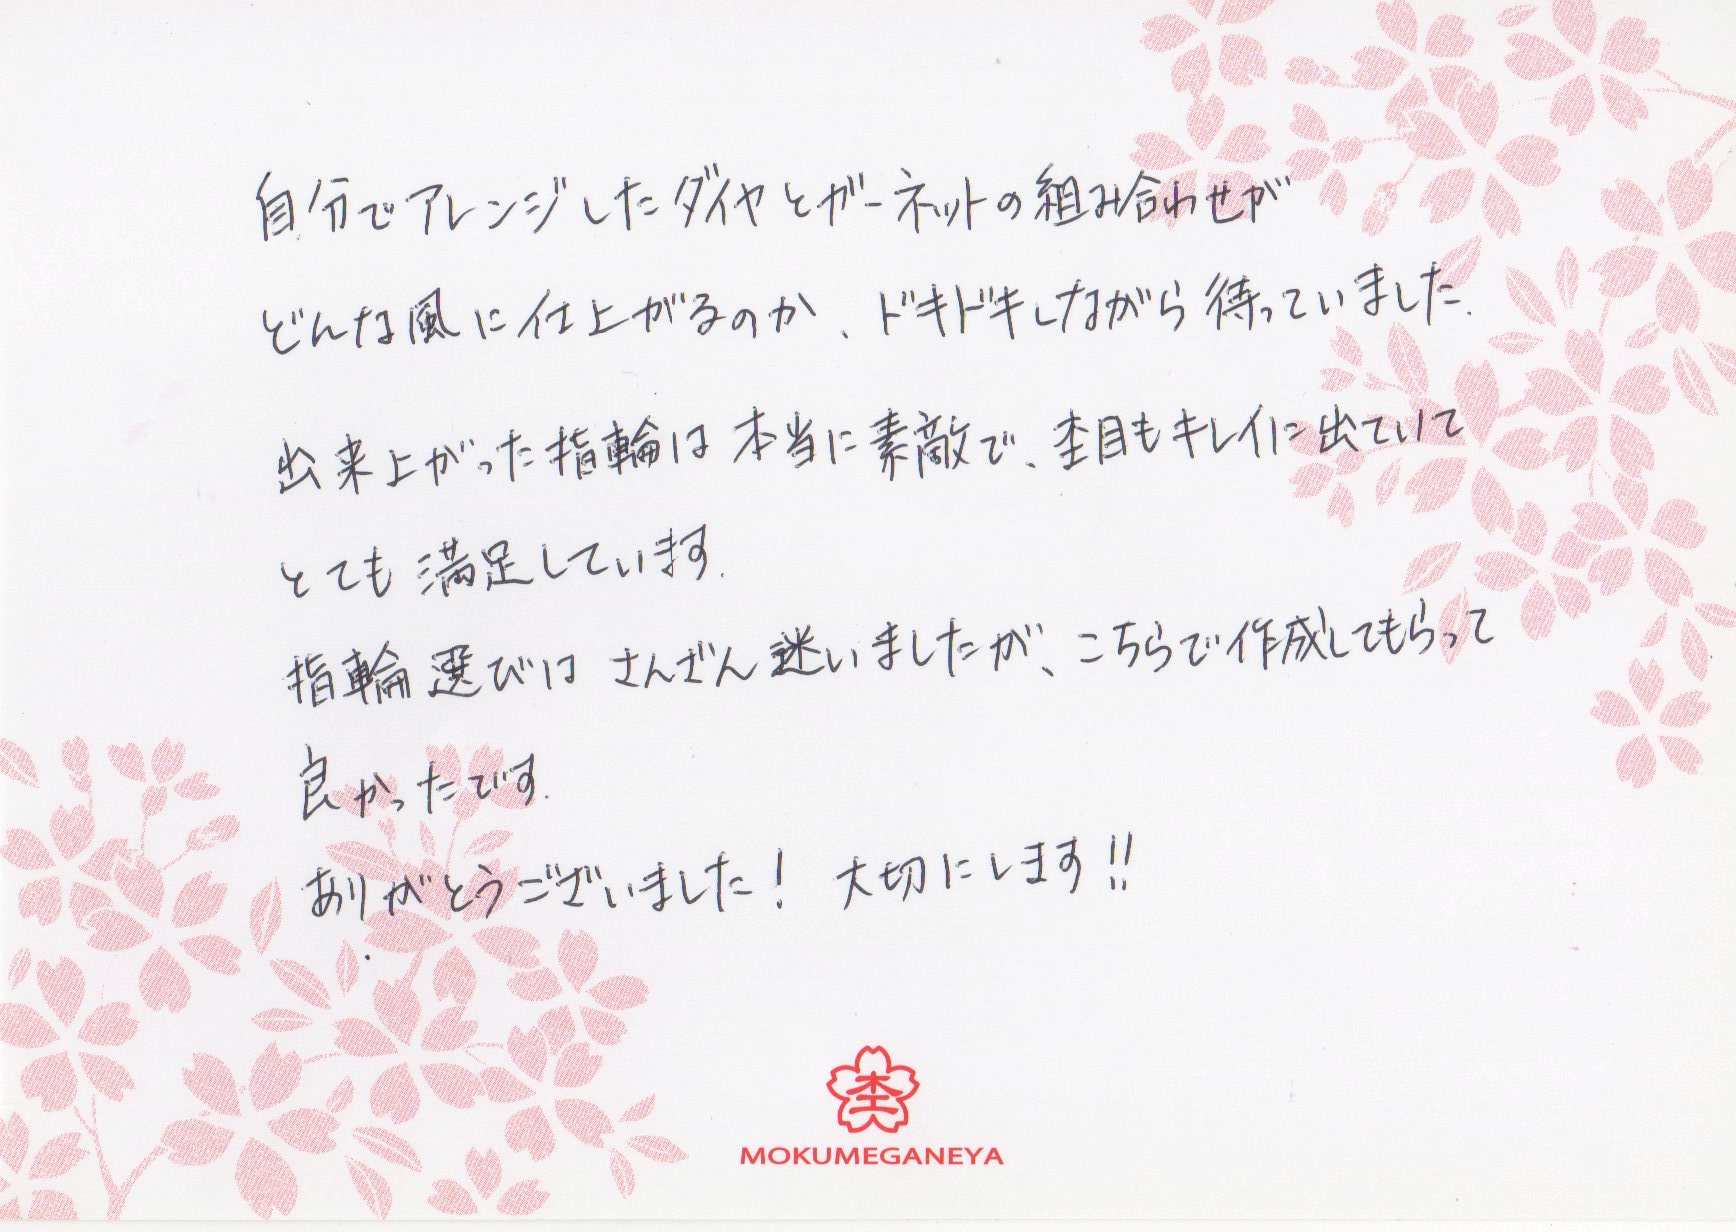 自分でアレンジしたダイヤとガーネットの組み合わせが
どんな風に仕上がるのか、ドキドキしながら待っていました.
出来上がった指輪は本当に素敵で、杢目もキレイに出ていて
とても満足しています.
指輪選びはさんざん迷いましたが、こちらで作成してもらって
良かったです.
ありがとうございました! 大切にします!!
杢
MOKUMEGANEYA